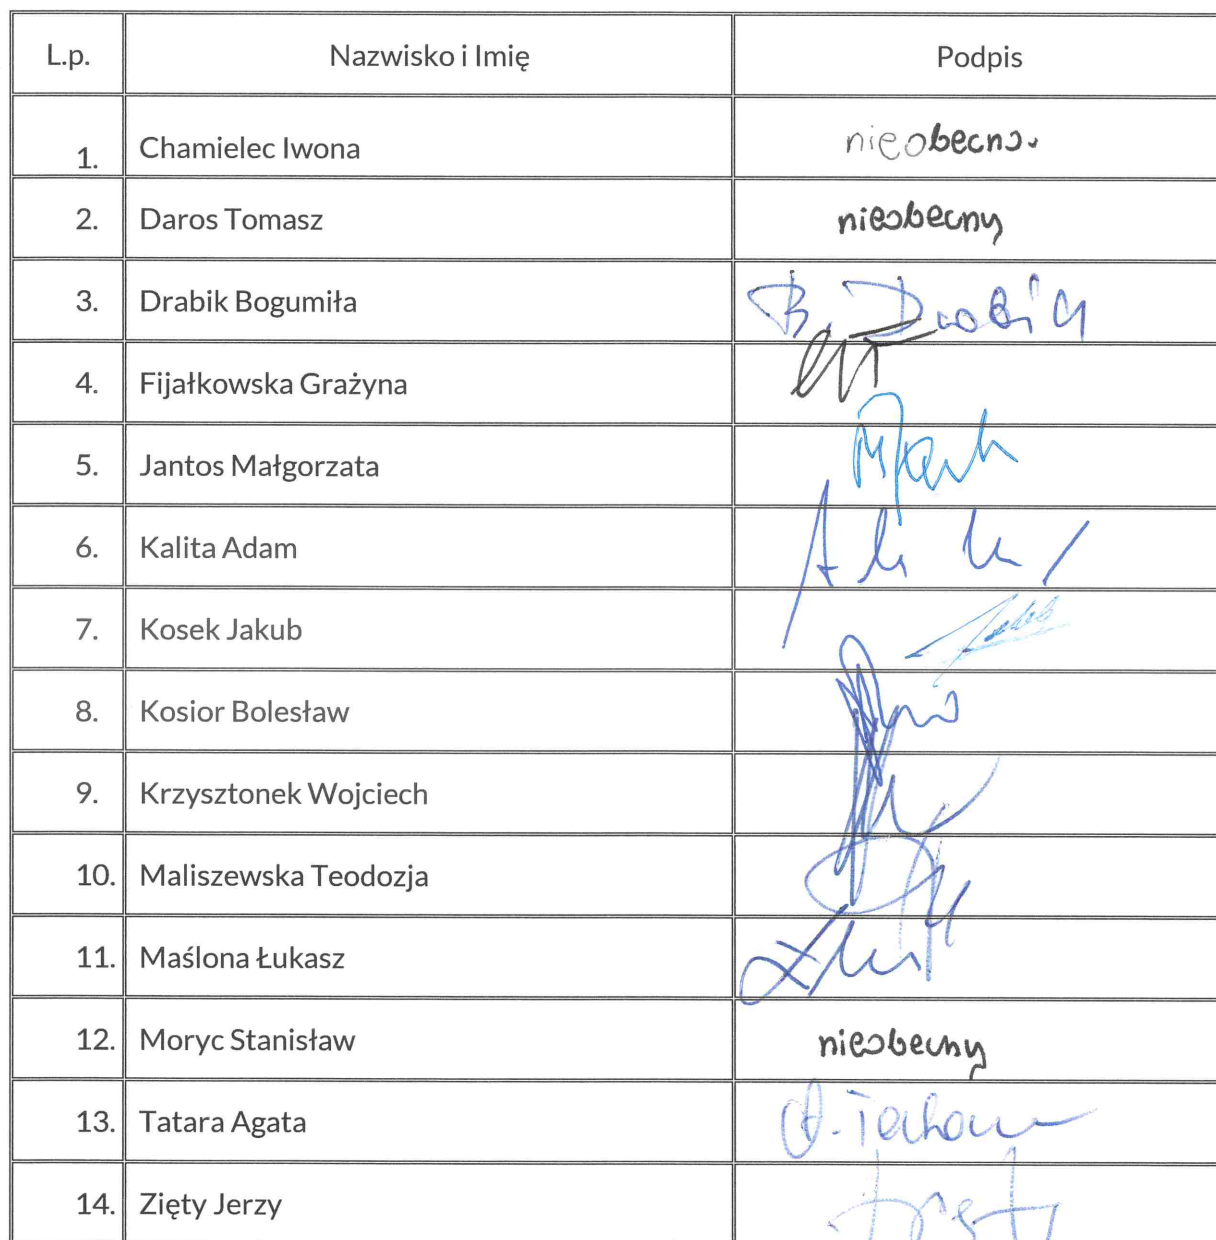 L.p. Nazwisko i Imię Podpis
1. Chamielec Iwona nieobecna.
2. Daros Tomasz nieobecny
3. Drabik Bogumiła B. Drabik
4. Fijałkowska Grażyna
5. Jantos Małgorzata
6. Kalita Adam
7. Kosek Jakub
8. Kosior Bolesław
9. Krzysztonek Wojciech
10. Maliszewska Teodozja
11. Maślona Łukasz
12. Moryc Stanisław nieobecny
13. Tatara Agata A. Tatara
14. Zięty Jerzy